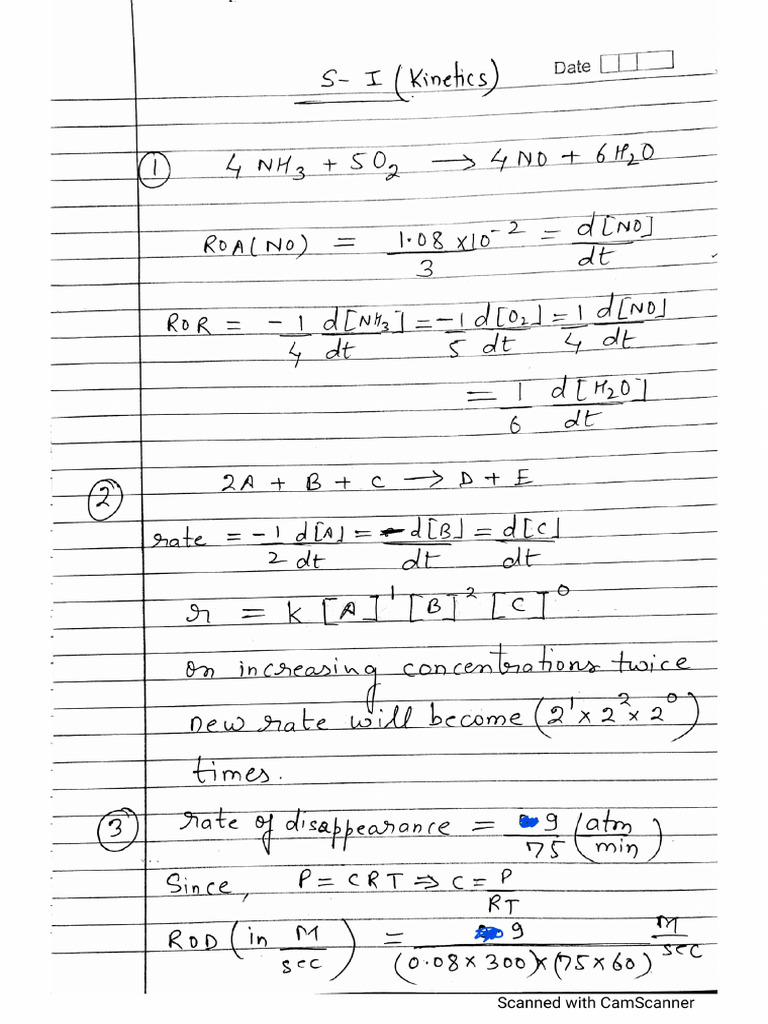 S- I (Kinetics) Date
① 4 NH₃ + 5O₂ → 4 NO + 6H₂O
ROA(NO) = 1.08 × 10⁻²/3 = d[NO]/dt
ROR = -1/4 d[NH₃]/dt = -1/5 d[O₂]/dt = 1/4 d[NO]/dt
= 1/6 d[H₂O]/dt
② 2A + B + C → D + E
rate = -1/2 d[A]/dt = -d[B]/dt = d[C]/dt
r = K [A]¹ [B]² [C]⁰
on increasing concentrations twice
new rate will become (2¹ × 2² × 2⁰)
times.
③ rate of disappearance = 9/75 (atm/min)
Since, P = CRT ⇒ C = P/RT
ROD (in M/sec) = 9/(0.08 × 300) × (75 × 60) M/sec
Scanned with CamScanner